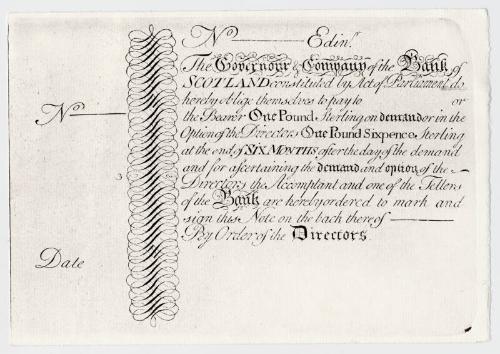 No Edinr.
The Governour & Company of the Bank of
SCOTLAND constituted by Act of Parliament do
hereby oblige themselves to pay to or
No
the Bearer One Pound Sterling on demand or in the
Option of the Directors One Pound Sixpence Sterling
at the end of SIX MONTHS after the day of the demand
and for ascertaining the demand and option of the
Directors the Accomptant and one of the Tellers
of the Bank are hereby ordered to mark and
sign this Note on the back there of
By Order of the Directors
Date